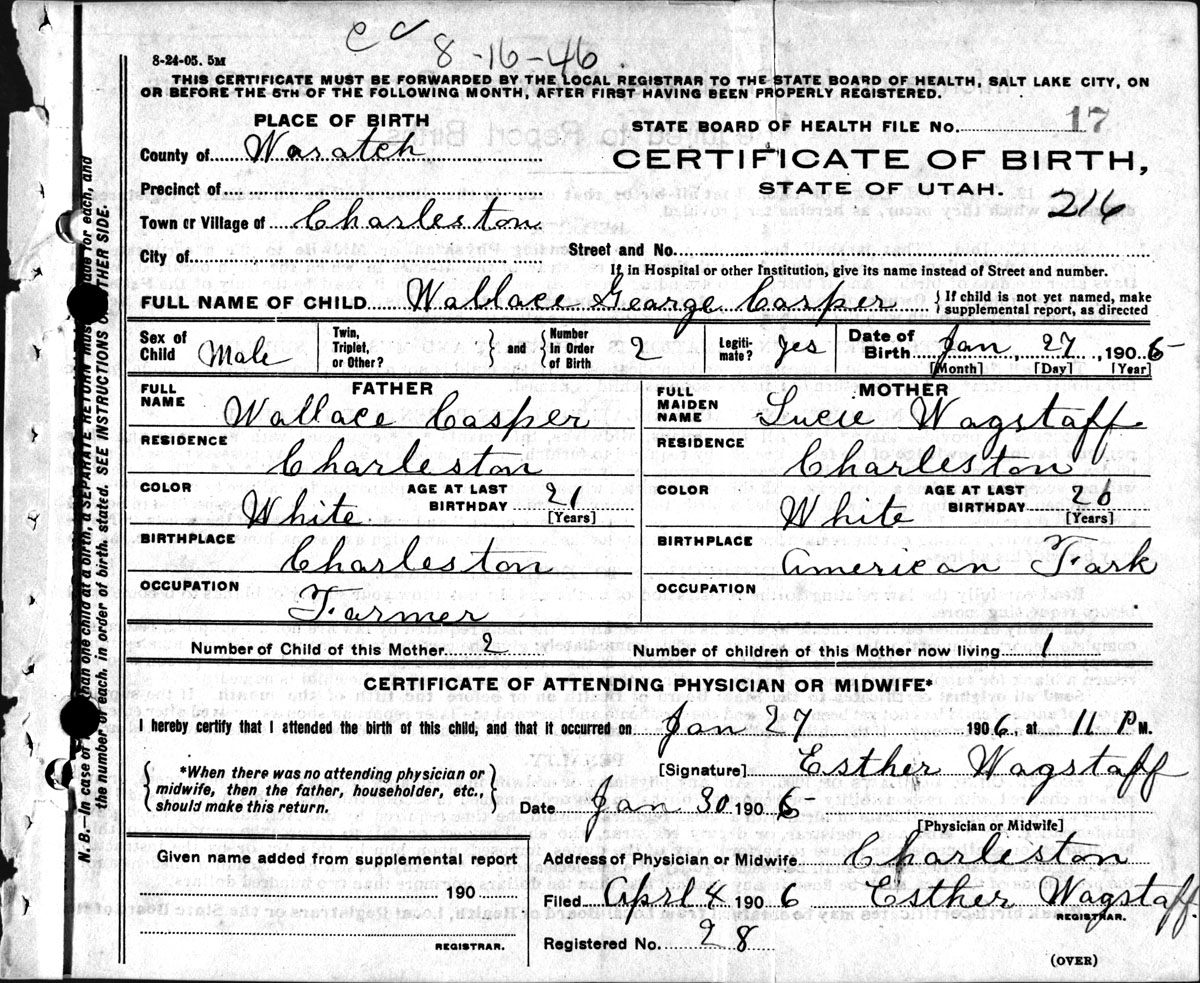 cc 8-16-46.
8-24-05. 5M
THIS CERTIFICATE MUST BE FORWARDED BY THE LOCAL REGISTRAR TO THE STATE BOARD OF HEALTH, SALT LAKE CITY, ON
OR BEFORE THE 5TH OF THE FOLLOWING MONTH, AFTER FIRST HAVING BEEN PROPERLY REGISTERED.
PLACE OF BIRTH
STATE BOARD OF HEALTH FILE No. 17
County of Wasatch
CERTIFICATE OF BIRTH,
Precinct of
STATE OF UTAH.
216
Town or Village of Charleston
City of
Street and No.
If in Hospital or other Institution, give its name instead of Street and number.
FULL NAME OF CHILD Wallace George Casper {If child is not yet named, make supplemental report, as directed
Sex of Child Male Twin, Triplet, or Other? } and { Number in Order of Birth 2 Legiti- mate? Yes Date of Birth Jan, 27, 190 6
[Month] [Day] [Year]
FATHER
MOTHER
FULL NAME Wallace Casper
FULL MAIDEN NAME Lucie Wagstaff
RESIDENCE Charleston
RESIDENCE Charleston
COLOR White AGE AT LAST BIRTHDAY 21 [Years]
COLOR White AGE AT LAST BIRTHDAY 20 [Years]
BIRTHPLACE Charleston
BIRTHPLACE American Fork
OCCUPATION Farmer
OCCUPATION
Number of Child of this Mother 2 Number of children of this Mother now living 1
CERTIFICATE OF ATTENDING PHYSICIAN OR MIDWIFE*
I hereby certify that I attended the birth of this child, and that it occurred on Jan 27 190 6, at 11 P M.
{*When there was no attending physician or midwife, then the father, householder, etc., should make this return.}
[Signature] Esther Wagstaff
Date Jan 30 190 6
[Physician or Midwife]
Given name added from supplemental report
190
REGISTRAR.
Address of Physician or Midwife Charleston
Filed Aprl 4 190 6 Esther Wagstaff
REGISTRAR.
Registered No. 28
(OVER)
N. B.—In case of more than one child at a birth, a SEPARATE RETURN must be made for each, and
the number of each, in order of birth, stated. SEE INSTRUCTIONS ON OTHER SIDE.